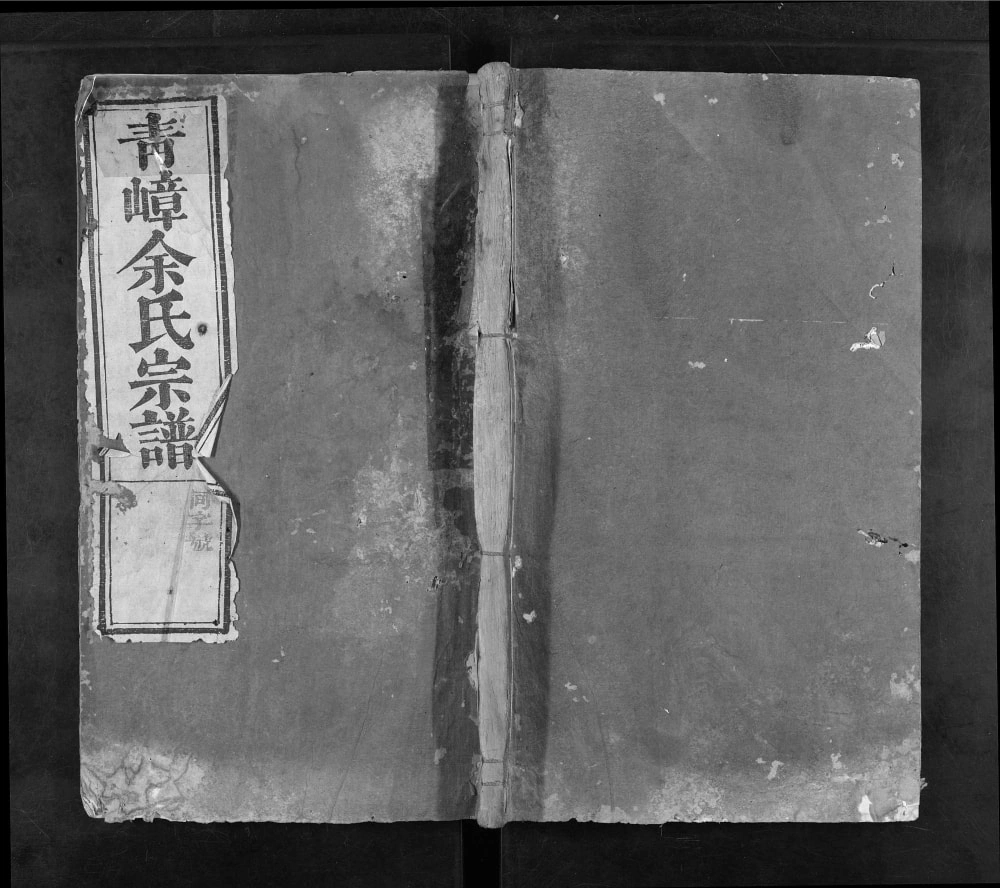 青嶂余氏宗譜
同字號